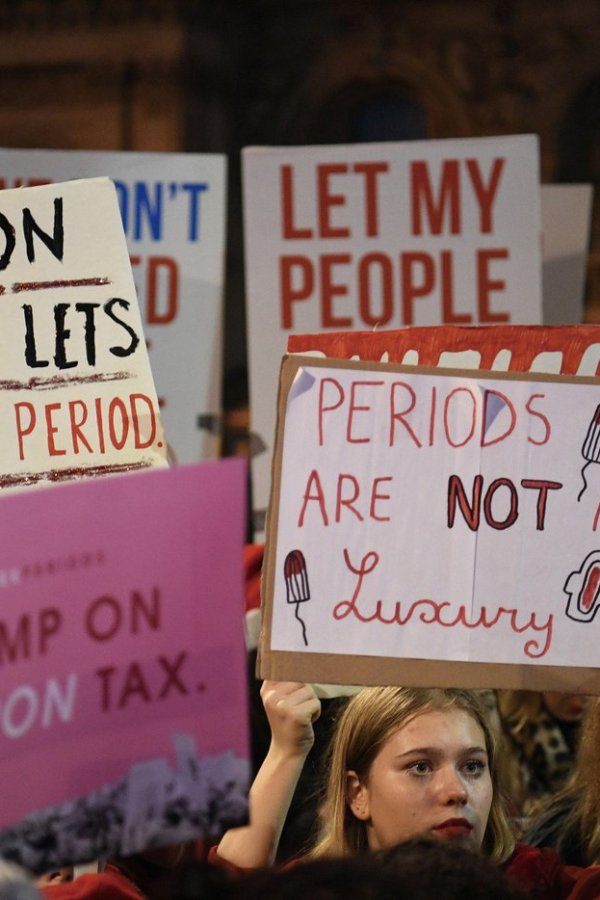 ON
LETS
PERIOD.
ON'T
ED
LET MY
PEOPLE
PERIODS
ARE NOT
Luxury
PERIODS
MP ON
ON TAX.